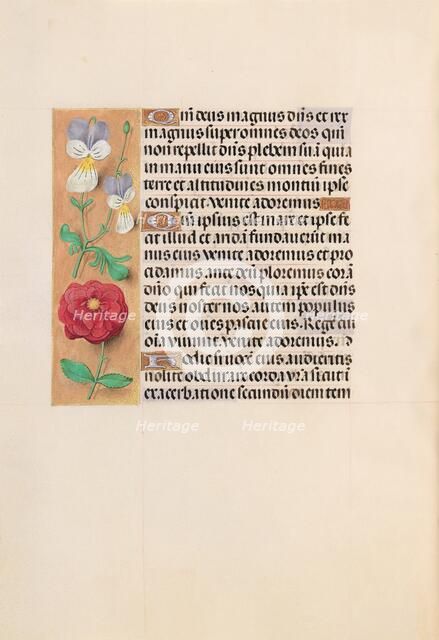 Qm̄ deus magnus dn̄s et rex
magnus super omnes deos qm̄
non repellit dn̄s plebem suā quia
in manu eius sunt omnes fines
terre et altitudines montiū ipse
conspicit venite adoremus
Qm̄ ipsius est mare et ipse fe
cit illud et aridā fundaverūt ma
nus eius venite adoremus et pro
cidamus ante deū ploremus corā
dn̄o qui fecit nos quia ip̄e est dn̄s
deus noster nos autem populus
eius et oves pascue eius. Regē cui
oīa vivūt venite adoremus.
Hodie si vocē eius audieritis
nolite obdurare corda vr̄a sicut ī
exacerbatione secundū diem tem
Heritage Heritage
Heritage Heritage
Heritage Heritage